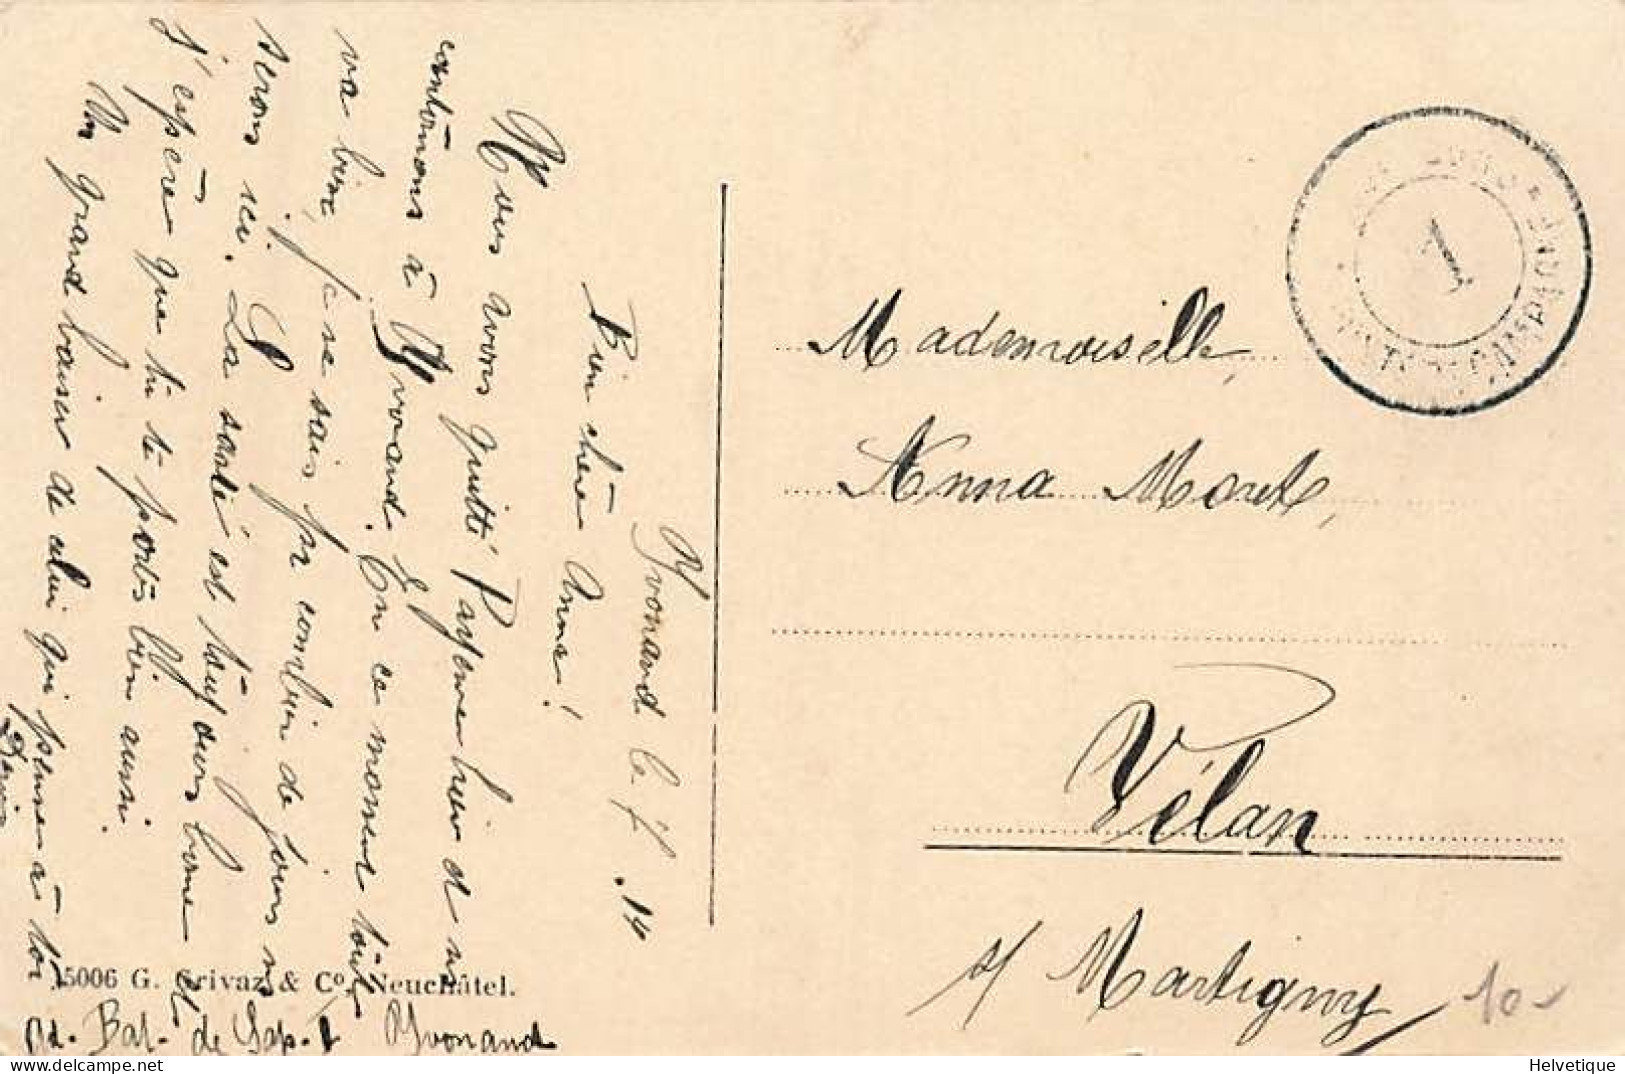 Yvonand le 7 . 14
Bien chère Anna!
Nous avons quitté Payerne hier et n
cantonnons à Yvonand. En ce moment tout
va bien, je ne sais pr combien de jours n
serons ici. La santé est toujours bonne et
j'espère que tu te portes bien aussi.
Un grand baiser de celui qui pense à toi
Mademoiselle,
Anna Moret,
Vélan
s/ Martigny
10-
1
CAMPAGNE
5006 G. & Co, Neuchâtel.
Ad. Bat. de Sap. 1 Yvonand
Helvetique